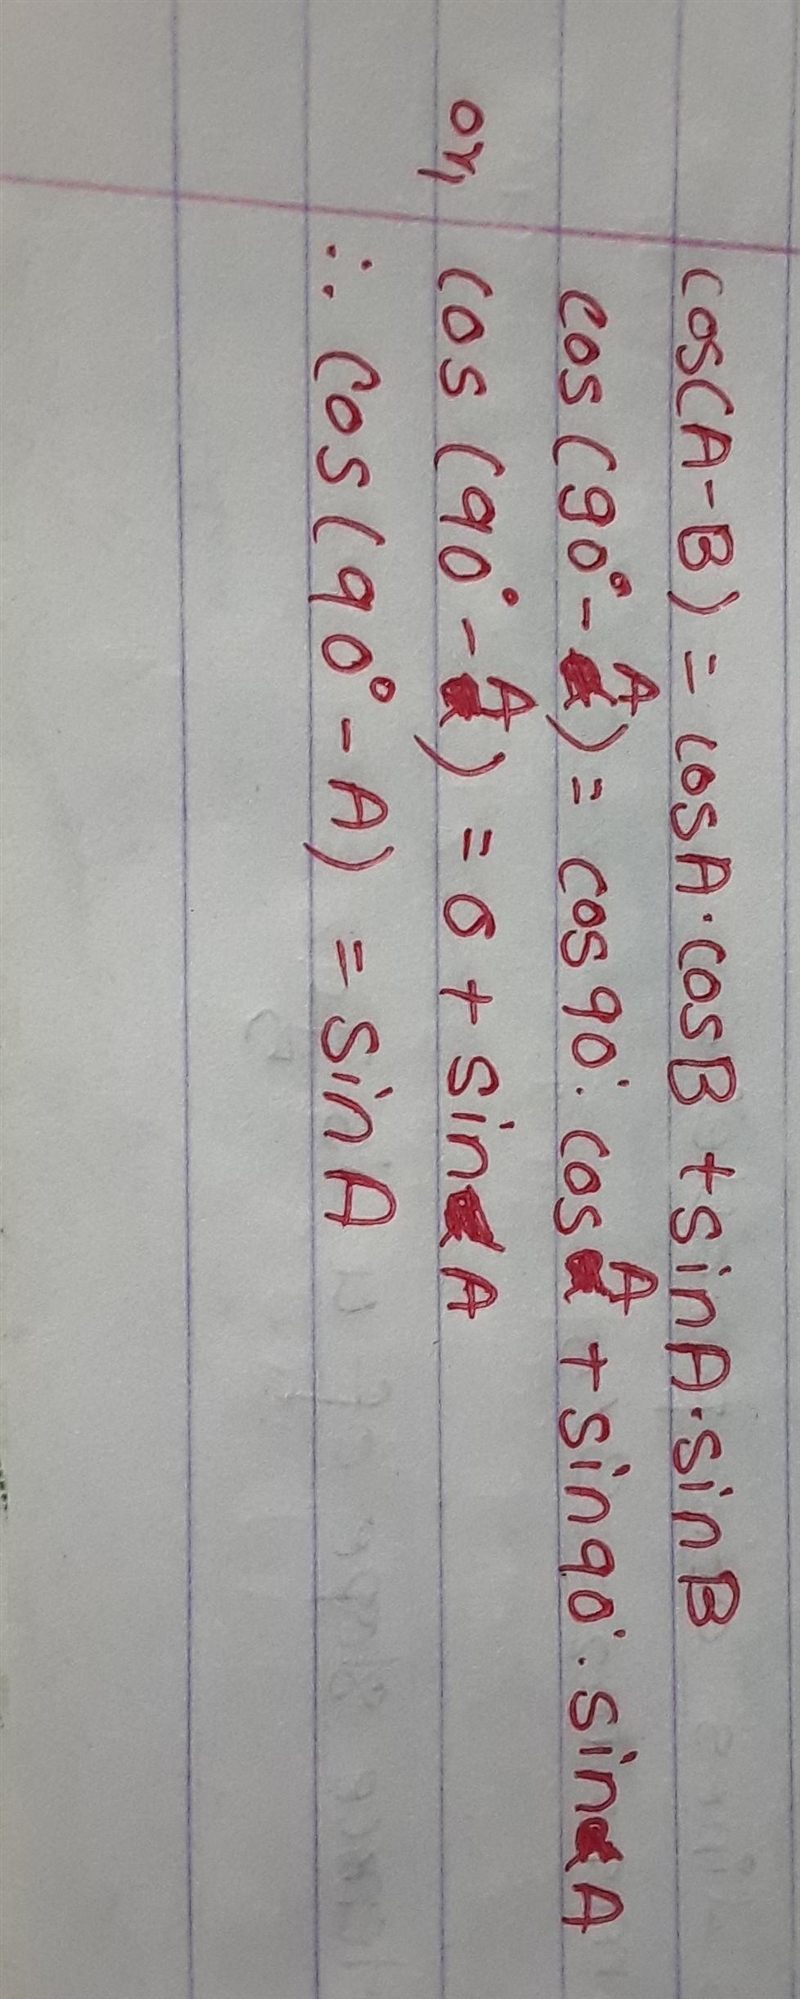 cos(A-B) = cosA·cosB + sinA·sinB
cos(90°-A) = cos90°·cosA + sin90°·sinA
or, cos(90°-A) = 0 + sinA
∴ cos(90°-A) = sinA